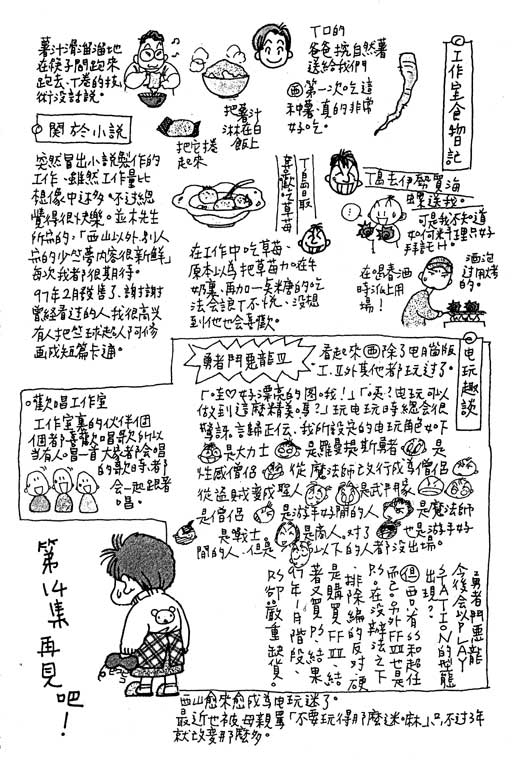 工作室食物日記
丁口的
爸爸挖自然薯
送給我們
西第一次吃這
和薯、真的非常
好吃。
薯汁滑溜溜地
在筷子間跑來
跑去、丁卷的技
術沒話說。
把薯汁
淋在白
飯上
把它捲
起來
關於小說
突然冒出小說製作的
工作、雖然工作量比
想像中还多、不过總
覺得很快樂。並木先生
所寫的,「西山以外、別人
寫的少竺夢內容很新鮮」
每次我都很期待。
97年2月發售了、謝謝
曾經看过的人我很高兴
有人把竺球超人阿修
画成短篇卡通。
喜歡吃草莓
在工作中吃草莓、
原本以為把草莓加在牛
奶裏、再加一点糖的吃
法會說丁不忱、沒想
到他也會喜歡。
丁島去伊勢買海
螺送我。
可是我不知道
如何料理只好
拜託H。
在唱春酒
時派上用
場!
酒泡
过用烤
的。
电玩趣談
勇者鬥惡龍Ⅲ
看起來西除了电腦版
工、Ⅱ外其他都玩过了。
「哇♡好漂亮的图哦!」「咦?电玩可以
做到這麼精美嗎?」玩电玩時總会很
驚訝。言歸正伝、我所設定的电玩角色如下
是大力士 是羅曼提斯勇者 是
性感僧侶 從魔法師改行成為僧侶
從盜賊变成聖人 是武鬥家
是僧侶 是游手好閒的人 是魔法師
是戰士 是商人。对了 也是游手好
閒的人、但是 以下的人都沒出場。
勇者鬥惡龍
今後会以PLAY
STATION的型態
出現?
但西只有SS和超任
而已。另外FFⅦ也是
PS。在沒辦法之下
、排除編的反对、硬
是購買FFⅦ、結
著又買PS、結果
97年1月階段、
PS卻嚴重缺貨。
歡唱工作室
工作室裏的伙伴個
個都喜歡唱歌所以
当有人唱一首大家都会唱
的歌時、都
会一起跟著
唱。
第14集再見吧!
西山愈來愈成為电玩迷了。
最近也被母親罵「不要玩得那麼迷嘛」。不过3年
就改变那麼多。